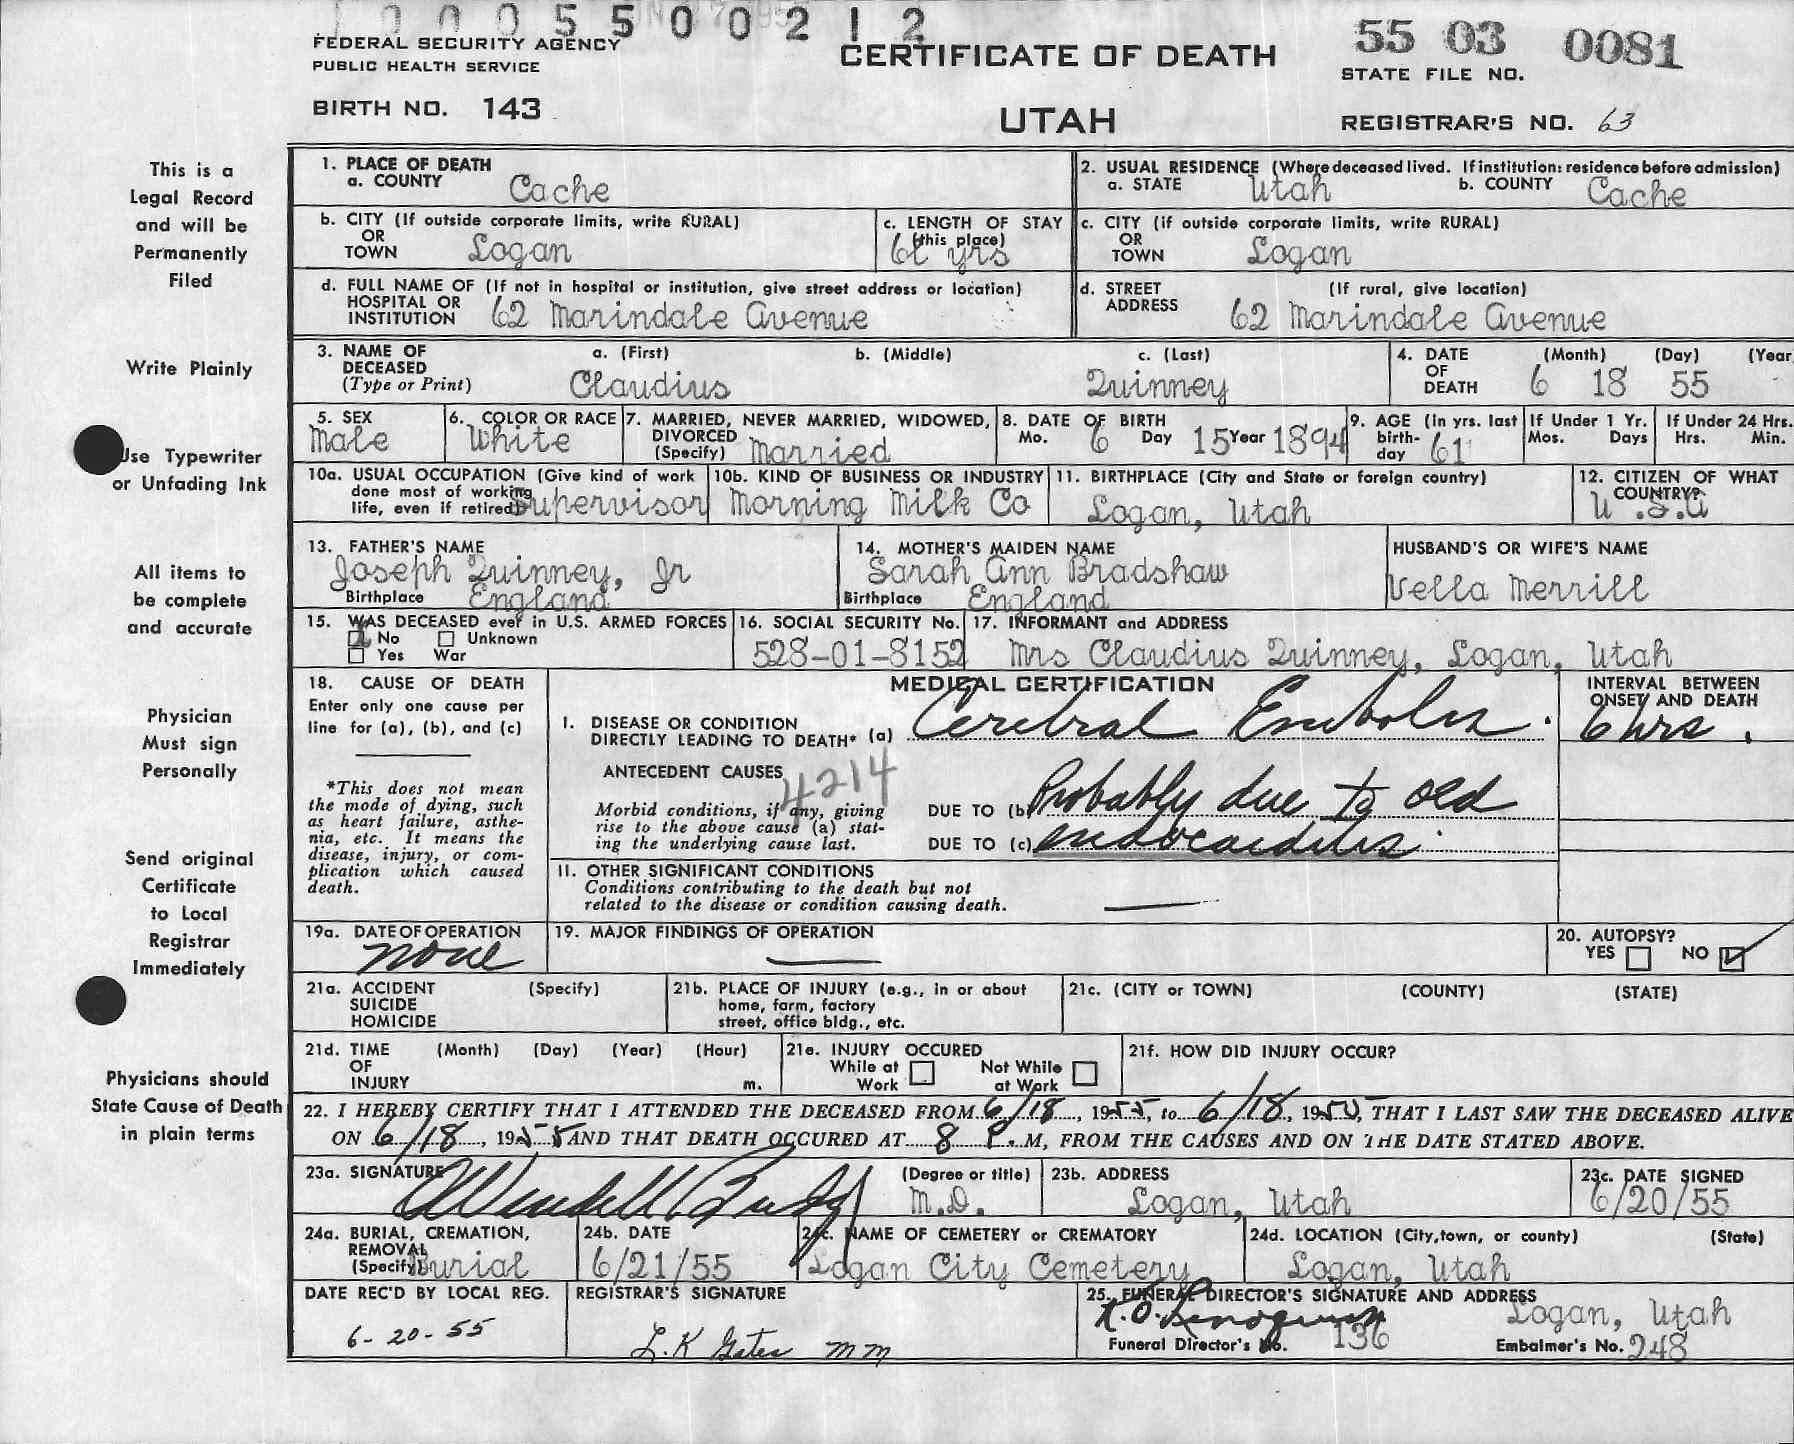 10005500212
FEDERAL SECURITY AGENCY
PUBLIC HEALTH SERVICE
BIRTH NO. 143
CERTIFICATE OF DEATH
UTAH
55 03 0081
STATE FILE NO.
REGISTRAR'S NO. 63
This is a
Legal Record
and will be
Permanently
Filed
Write Plainly
Use Typewriter
or Unfading Ink
All items to
be complete
and accurate
Physician
Must sign
Personally
Send original
Certificate
to Local
Registrar
Immediately
Physicians should
State Cause of Death
in plain terms
1. PLACE OF DEATH
a. COUNTY Cache
2. USUAL RESIDENCE (Where deceased lived. If institution: residence before admission)
a. STATE Utah b. COUNTY Cache
b. CITY (If outside corporate limits, write RURAL)
OR
TOWN Logan
c. LENGTH OF STAY
(this place)
61 yrs
c. CITY (if outside corporate limits, write RURAL)
OR
TOWN Logan
d. FULL NAME OF (If not in hospital or institution, give street address or location)
HOSPITAL OR
INSTITUTION 62 Marindale Avenue
d. STREET (If rural, give location)
ADDRESS 62 Marindale Avenue
3. NAME OF a. (First) b. (Middle) c. (Last)
DECEASED
(Type or Print) Claudius Quinney
4. DATE (Month) (Day) (Year
OF
DEATH 6 18 55
5. SEX
Male
6. COLOR OR RACE
White
7. MARRIED, NEVER MARRIED, WIDOWED,
DIVORCED
(Specify) Married
8. DATE OF BIRTH
Mo. 6 Day 15 Year 1894
9. AGE (In yrs. last
birth-
day 61
If Under 1 Yr.
Mos. Days
If Under 24 Hrs.
Hrs. Min.
10a. USUAL OCCUPATION (Give kind of work
done most of working
life, even if retired) Supervisor
10b. KIND OF BUSINESS OR INDUSTRY
Morning Milk Co
11. BIRTHPLACE (City and State or foreign country)
Logan, Utah
12. CITIZEN OF WHAT
COUNTRY?
U.S.A
13. FATHER'S NAME
Joseph Quinney, Jr
Birthplace England
14. MOTHER'S MAIDEN NAME
Sarah Ann Bradshaw
Birthplace England
HUSBAND'S OR WIFE'S NAME
Vella Merrill
15. WAS DECEASED ever in U.S. ARMED FORCES
No Unknown
Yes War
16. SOCIAL SECURITY No.
528-01-8152
17. INFORMANT and ADDRESS
Mrs Claudius Quinney, Logan, Utah
18. CAUSE OF DEATH
Enter only one cause per
line for (a), (b), and (c)
*This does not mean
the mode of dying, such
as heart failure, asthe-
nia, etc. It means the
disease, injury, or com-
plication which caused
death.
MEDICAL CERTIFICATION
I. DISEASE OR CONDITION
DIRECTLY LEADING TO DEATH* (a) Cerebral Embolus.
INTERVAL BETWEEN
ONSET AND DEATH
6 hrs.
ANTECEDENT CAUSES
4214
Morbid conditions, if any, giving
rise to the above cause (a) stat-
ing the underlying cause last.
DUE TO (b) Probably due to old
DUE TO (c) endocarditis.
II. OTHER SIGNIFICANT CONDITIONS
Conditions contributing to the death but not
related to the disease or condition causing death.
19a. DATE OF OPERATION
none
19. MAJOR FINDINGS OF OPERATION
20. AUTOPSY?
YES NO
21a. ACCIDENT (Specify)
SUICIDE
HOMICIDE
21b. PLACE OF INJURY (e.g., in or about
home, farm, factory
street, office bldg., etc.
21c. (CITY or TOWN) (COUNTY) (STATE)
21d. TIME (Month) (Day) (Year) (Hour)
OF
INJURY m.
21e. INJURY OCCURED
While at Not While
Work at Work
21f. HOW DID INJURY OCCUR?
22. I HEREBY CERTIFY THAT I ATTENDED THE DECEASED FROM 6/18, 1955, to 6/18, 1955, THAT I LAST SAW THE DECEASED ALIVE
ON 6/18, 1955 AND THAT DEATH OCCURED AT 8 P.M, FROM THE CAUSES AND ON THE DATE STATED ABOVE.
23a. SIGNATURE Wendell Budge
(Degree or title)
M.D.
23b. ADDRESS
Logan, Utah
23c. DATE SIGNED
6/20/55
24a. BURIAL, CREMATION,
REMOVAL
(Specify) Burial
24b. DATE
6/21/55
24c. NAME OF CEMETERY or CREMATORY
Logan City Cemetery
24d. LOCATION (City, town, or county) (State)
Logan, Utah
DATE REC'D BY LOCAL REG.
6-20-55
REGISTRAR'S SIGNATURE
L.K Gates mm
25. FUNERAL DIRECTOR'S SIGNATURE AND ADDRESS
Logan, Utah
Funeral Director's No. 136
Embalmer's No. 248